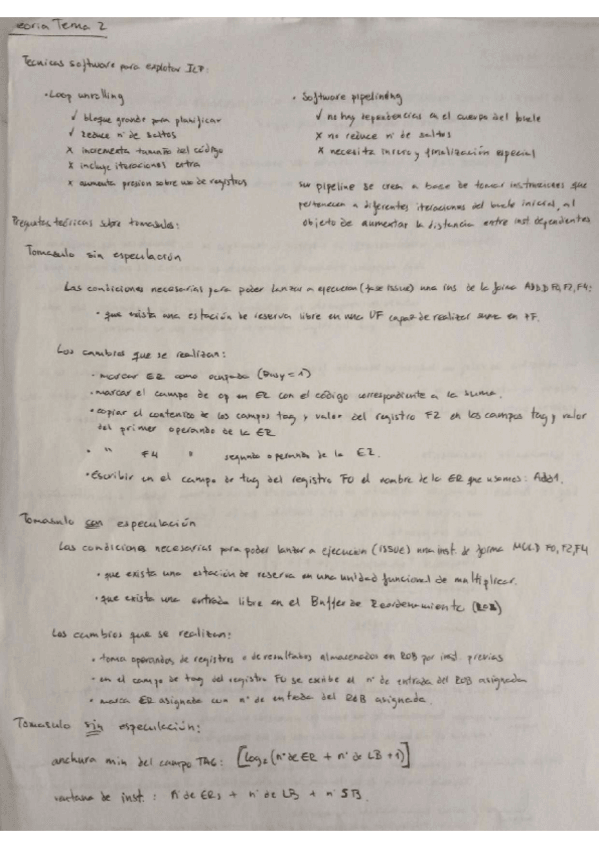 Teoria Tema 2
Tecnicas software para explotar ILP:
• Loop unrolling
✓ bloque grande para planificar
✓ reduce nº de saltos
✗ incrementa tamaño del código
✗ incluye iteraciones extra
✗ aumenta presion sobre uso de registros
• Software pipelining
✓ no hay dependencias en el cuerpo del bucle
✗ no reduce nº de saltos
✗ necesita inicio y finalización especial
sw pipeline se crea a base de tomar instrucciones que
pertenecen a diferentes iteraciones del bucle inicial, al
objeto de aumentar la distancia entre inst dependientes
Preguntas teóricas sobre tomasulo:
Tomasulo sin especulación
Las condiciones necesarias para poder lanzar a ejecucion (fase issue) una ins de la forma ADD.D F0, F2, F4:
• que exista una estación de reserva libre en una UF capaz de realizar suma en
Los cambios que se realizan:
• marcar ER como ocupada (Busy = 1)
• marcar el campo de op en ER con el código correspondiente a la suma.
• copiar el contenido de los campos tag y valor del registro F2 en los campos tag y valor
del primer operando de la ER
• " F4 " segundo operando de la ER.
• Escribir en el campo de tag del registro F0 el nombre de la ER que usemos: Add1.
Tomasulo con especulación
Las condiciones necesarias para poder lanzar a ejecucion (issue) una inst. de forma MUL.D F0, F2, F4
• que exista una estación de reserva en una unidad funcional de multiplicar.
• que exista una entrada libre en el Buffer de Reordenamiento (ROB)
Los cambios que se realizan:
• toma operandos de registros o de resultados almacenados en ROB por inst. previas
• en el campo de tag del registro F0 se escribe el nº de entrada del ROB asignada
• marca ER asignada con nº de entrada del ROB asignada.
Tomasulo sin especulación:
anchura min del campo TAG: [log₂ (nº de ER + nº de LB + 1)]
ventana de inst. : nº de ERs + nº de LB + nº SB.